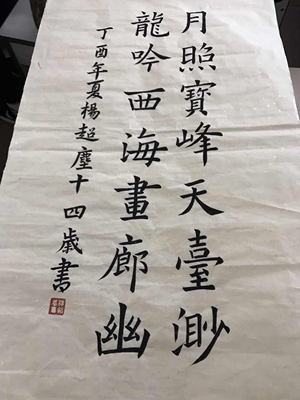 月照寶峰天臺渺
龍吟西海畫廊幽
丁酉年夏楊超塵十四歲書